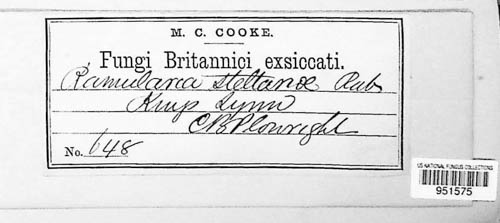 M. C. COOKE.
Fungi Britannici exsiccati.
Ramularia stellariae Rab
Kings Lynn
C B Plowright
No. 648
US NATIONAL FUNGUS COLLECTIONS
951575